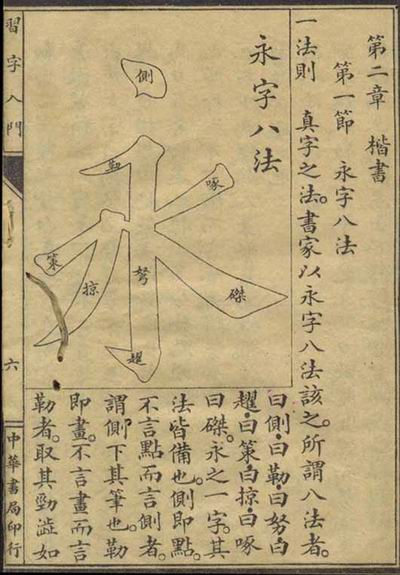 第二章 楷書
第一節 永字八法
一法則 真字之法。書家以永字八法該之。所謂八法者。
永字八法
側
勒
啄
策
掠
努
磔
趯
曰側。曰勒。曰努。曰
趯。曰策。曰掠。曰啄
曰磔。永之一字。其
法皆備也。側即點。
不言點而言側者。
謂側下其筆也。勒
即畫。不言畫而言
勒者。取其勁澀如
習字入門
六
中華書局印行